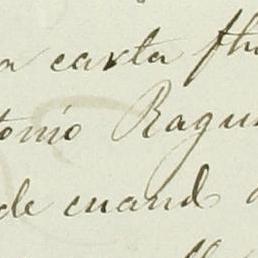 a carta fh
tonio Ragu
de cuand